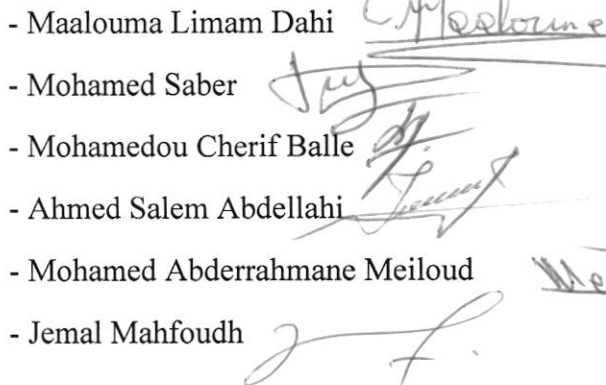 - Maalouma Limam Dahi
- Mohamed Saber
- Mohamedou Cherif Balle
- Ahmed Salem Abdellahi
- Mohamed Abderrahmane Meiloud
- Jemal Mahfoudh